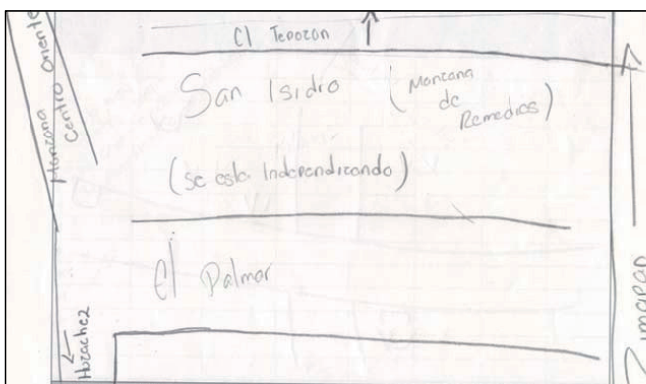 Manzana
Centro Oriente
El Tepozan
San Isidro
(Manzana
de
Remedios)
(se esta Independizando)
El Palmar
Huizachez
Zimapan